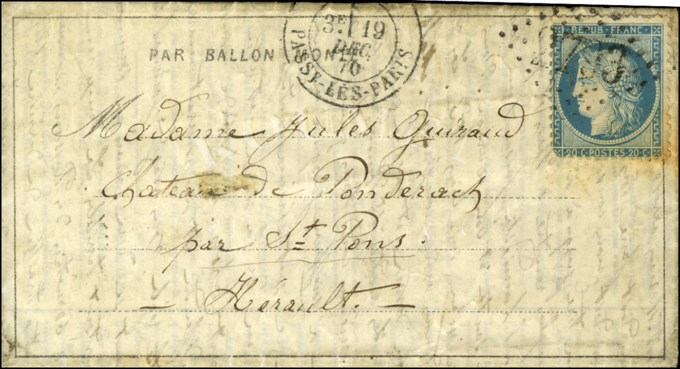 3E 19
DEC.
70
PASSY-LÈS-PARIS
PAR BALLON MONTÉ.
REPUB. FRANC.
20 C. POSTES 20 C.
Madame Jules Guiraud
Château de Ponderach
par St Pons.
— Hérault. —